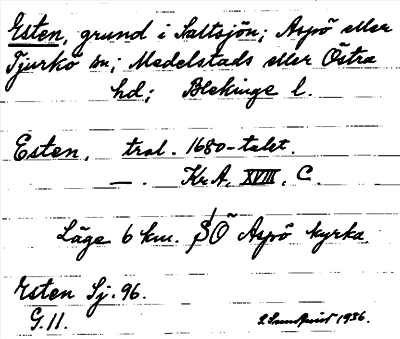 Esten, grund i Saltsjön; Aspö eller
Tjurkö sn; Medelstads eller Östra
hd; Blekinge l.
Esten, trol. 1680-talet.
—. Kr.A. XVIII. C.
Läge 6 km. SÖ Aspö kyrka
Esten Sj. 96.
G. 11.
1936.